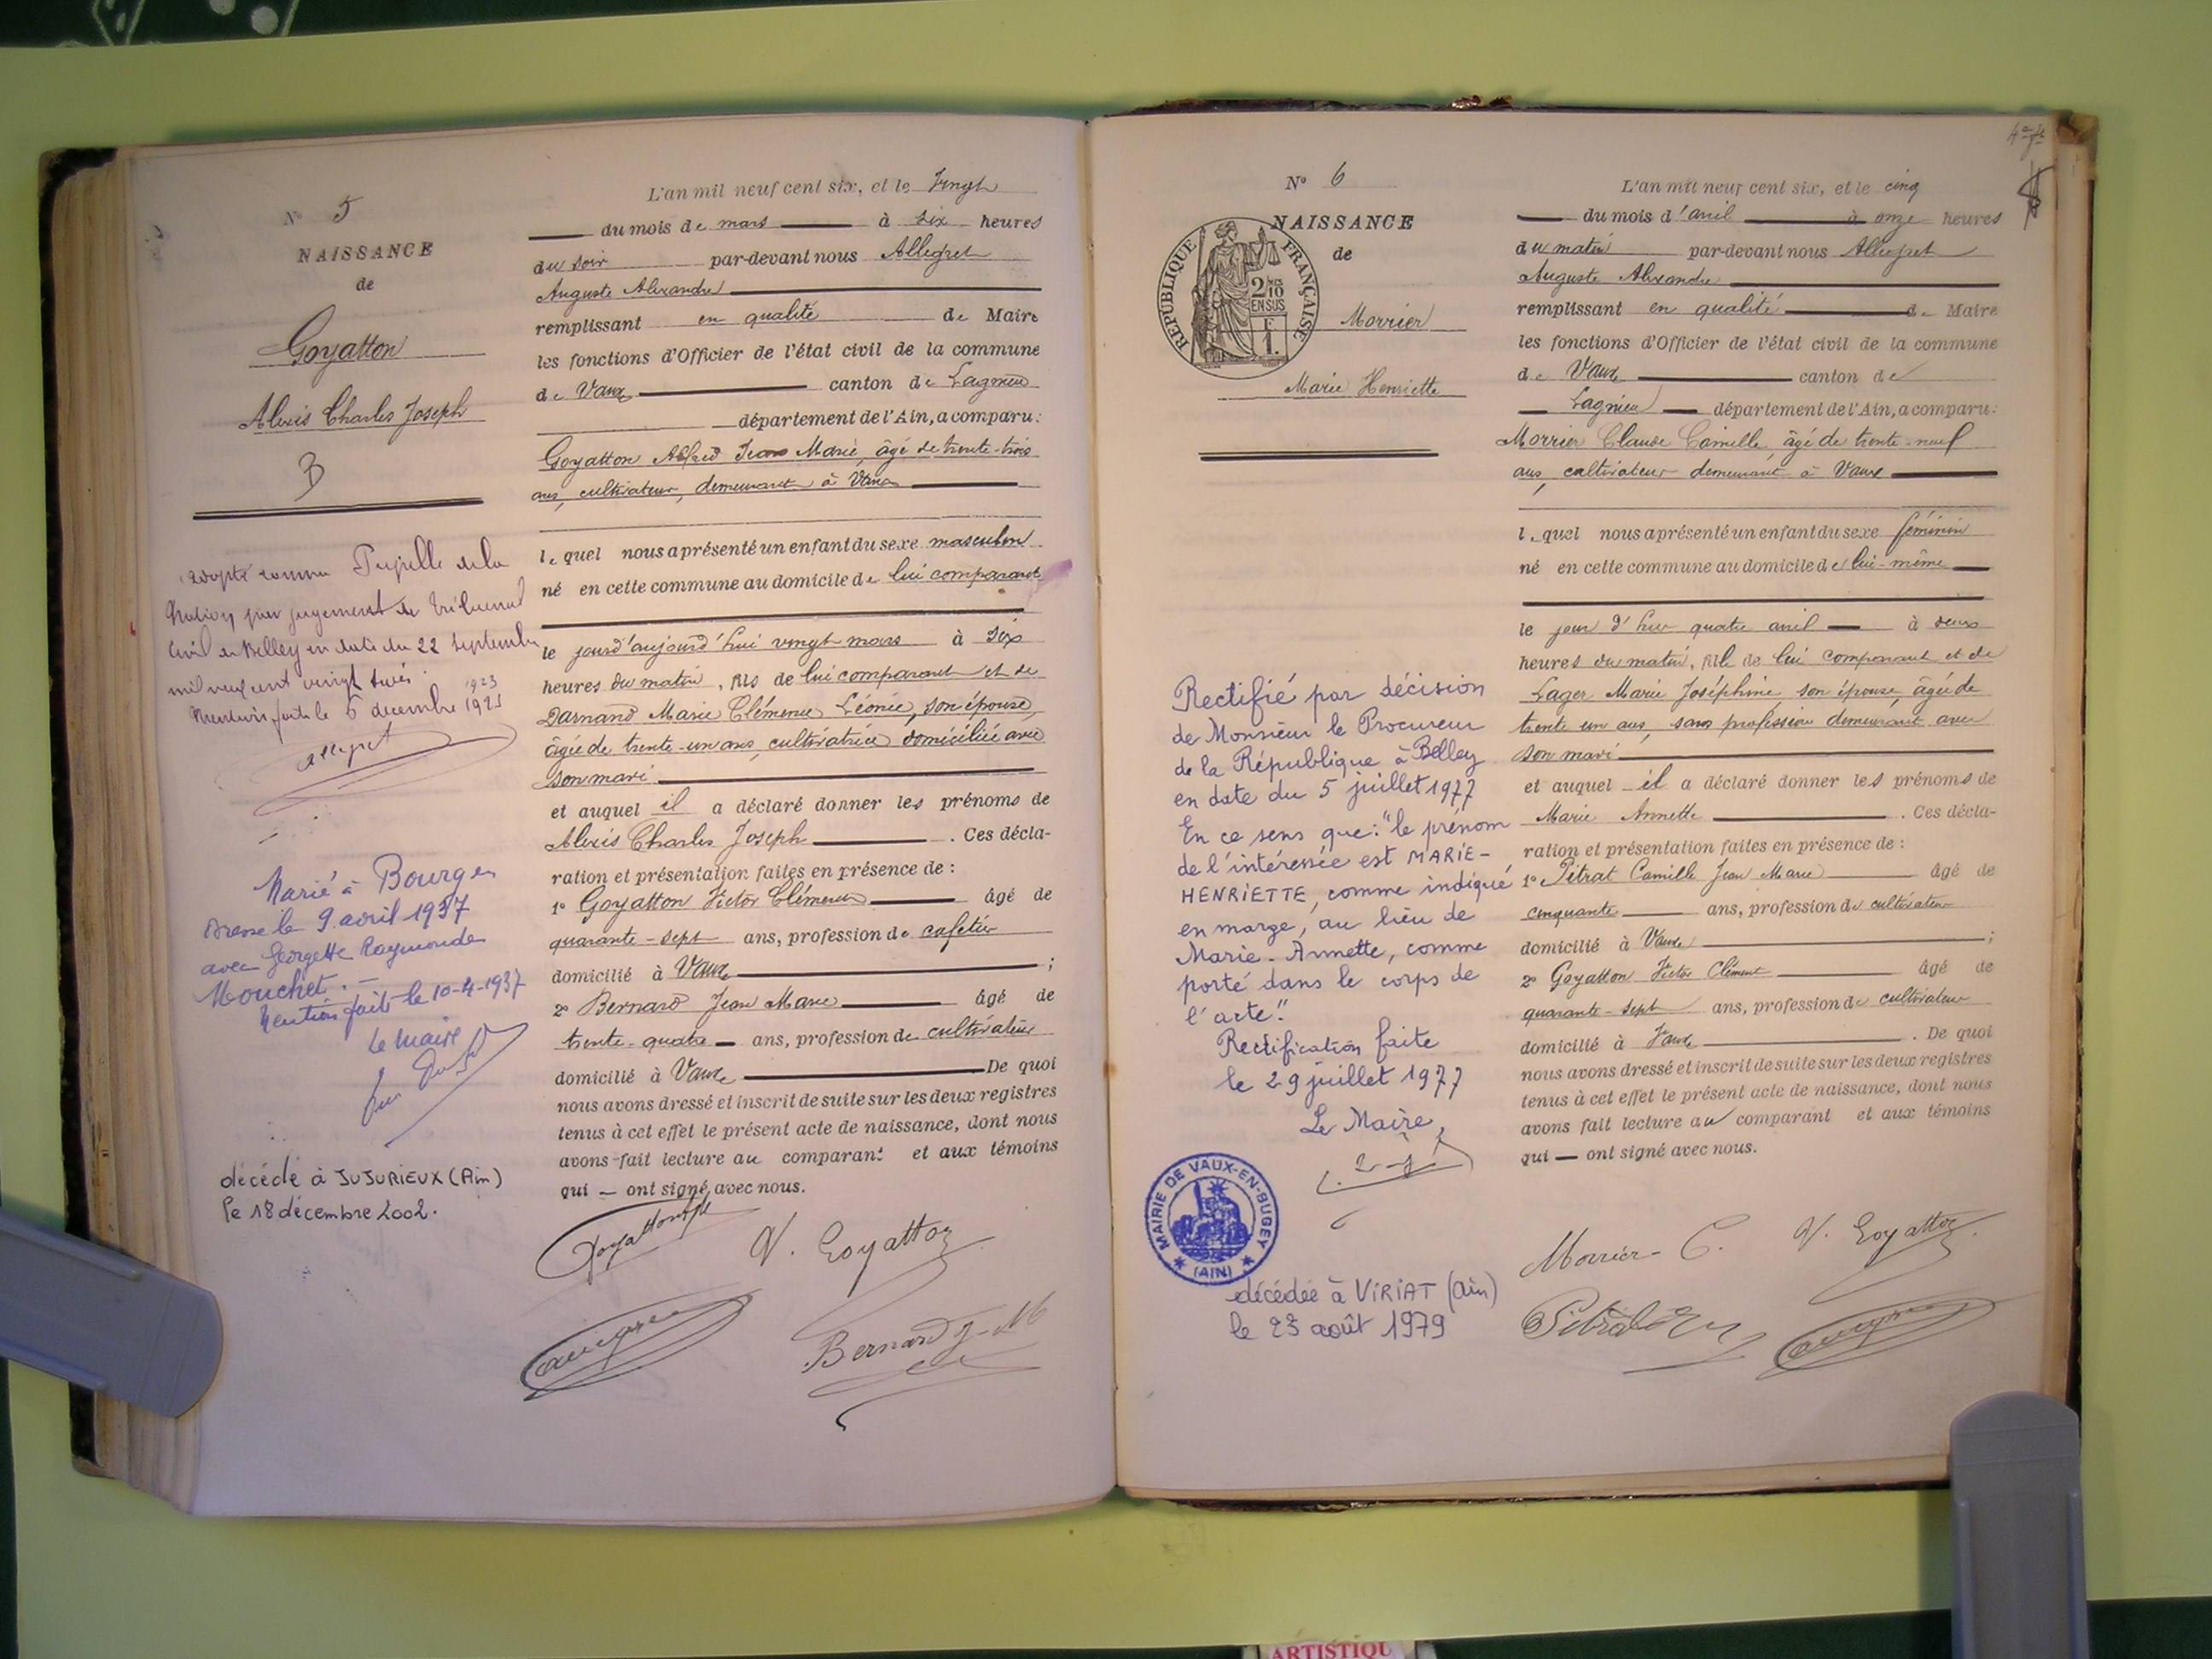 N° 5
NAISSANCE
de
Goyatton
Alexis Charles Joseph
B
adopté comme Pupille de la
Nation par jugement du tribunal
civil de Belley en date du 22 septembre
mil neuf cent vingt trois.
Mention faite le 5 décembre 1923
allegret
Marié à Bourg en
Bresse le 9 avril 1937
avec Georgette Raymonde
Mouchet. -
Mention faite le 10-4-1937
Le Maire
décédé à JUJURIEUX (Ain)
le 18 décembre 2002.
L'an mil neuf cent six, et le vingt
du mois de mars à six heures
du soir par-devant nous Allegret
Auguste Alexandre
remplissant en qualité de Maire
les fonctions d'Officier de l'état civil de la commune
de Vaux canton de Lagnieu
département de l'Ain, a comparu:
Goyatton Alfred Jean Marie, âgé de trente-trois
ans, cultivateur, demeurant à Vaux
lequel nous a présenté un enfant du sexe masculin
né en cette commune au domicile de lui comparant
le jourd'aujourd'hui vingt mars à six
heures du matin, fils de lui comparant et de
Darnand Marie Clémence Léonie, son épouse,
âgée de trente-un ans, cultivatrice domiciliée avec
son mari
et auquel il a déclaré donner les prénoms de
Alexis Charles Joseph . Ces décla-
ration et présentation faites en présence de :
1° Goyatton Victor Clément âgé de
quarante-sept ans, profession de cafetier
domicilié à Vaux ;
2° Bernard Jean Marie âgé de
trente-quatre ans, profession de cultivateur
domicilié à Vaux De quoi
nous avons dressé et inscrit de suite sur les deux registres
tenus à cet effet le présent acte de naissance, dont nous
avons fait lecture au comparant et aux témoins
qui — ont signé avec nous.
V. Goyatton
Bernard J-M
N° 6
NAISSANCE
de
RÉPUBLIQUE FRANÇAISE
2/10 EN SUS
1 F
Morrier
Marie Henriette
Rectifié par décision
de Monsieur le Procureur
de la République à Belley
en date du 5 juillet 1977
En ce sens que: "le prénom
de l'intéressée est MARIE-
HENRIETTE, comme indiqué
en marge, au lieu de
Marie-Annette, comme
porté dans le corps de
l'acte".
Rectification faite
le 29 juillet 1977
Le Maire,
MAIRIE DE VAUX-EN-BUGEY
(AIN)
décédée à VIRIAT (Ain)
le 23 août 1979
L'an mil neuf cent six, et le cinq
du mois d'avril à onze heures
du matin par-devant nous Allegret
Auguste Alexandre
remplissant en qualité de Maire
les fonctions d'Officier de l'état civil de la commune
de Vaux canton de
Lagnieu département de l'Ain, a comparu:
Morrier Claude Camille, âgé de trente-neuf
ans, cultivateur demeurant à Vaux
lequel nous a présenté un enfant du sexe féminin
né en cette commune au domicile de lui-même
le jour d'hier quatre avril à deux
heures du matin, fille de lui comparant et de
Lager Marie Joséphine, son épouse, âgée de
trente un ans, sans profession demeurant avec
son mari
et auquel il a déclaré donner les prénoms de
Marie Annette . Ces décla-
ration et présentation faites en présence de :
1° Pitrat Camille Jean Marie âgé de
cinquante ans, profession de cultivateur
domicilié à Vaux ;
2° Goyatton Victor Clément âgé de
quarante-sept ans, profession de cultivateur
domicilié à Vaux . De quoi
nous avons dressé et inscrit de suite sur les deux registres
tenus à cet effet le présent acte de naissance, dont nous
avons fait lecture au comparant et aux témoins
qui — ont signé avec nous.
Morrier C.
V. Goyatton
ARTISTIQU